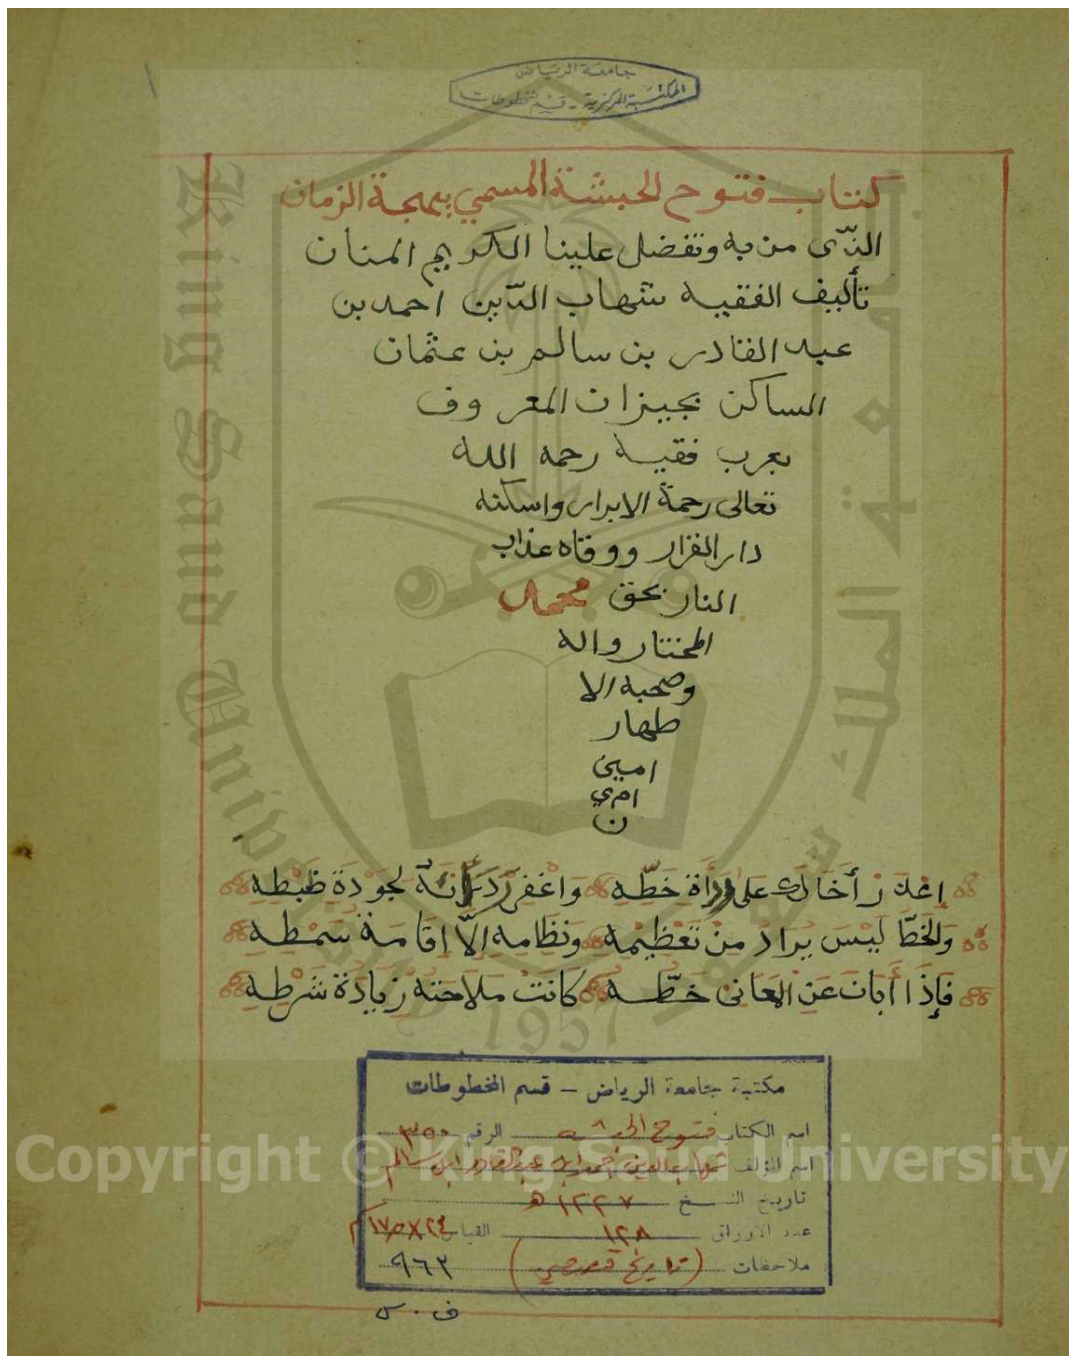 جامعة الرياض
المكتبة المركزية - قسم المخطوطات
كتاب فتوح الحبشة المسمي ببهجة الزمان
الذّى من به وتفضل علينا الكريم المنان
تأليف الفقيه شهاب الدّين احمد بن
عبد القادر بن سالم بن عثمان
الساكن بجيزان المعروف
بعرب فقيه رحمه الله
تعالى رحمة الابرار واسكنه
دار القرار ووقاه عذاب
النار بحق محمد
المختار واله
وصحبه الا
طهار
امين
امي
ن
إعذر أخاك على رداءة خطّه واغفر رداءته لجودة ضبطه
والخطّ ليس يراد من تعظيمه ونظامه إلّا إقامة سمطه
فإذا أبان عن المعانى خطّه كانت ملاحته زيادة شرطه
مكتبة جامعة الرياض - قسم المخطوطات
اسم الكتاب فتوح الحبشه الرقم ٣٥٠
اسم المؤلف شهاب الدين احمد بن عبد القادر ابن سالم
تاريخ النسخ ١٢٢٧ هـ
عدد الاوراق ١٢٨ القياس ٢٤×١٧ سم
ملاحظات (تاريخ قصصي) ٩٦٣
ف . س
King Saud University
جامعة الملك سعود
1957
Copyright © King Saud University